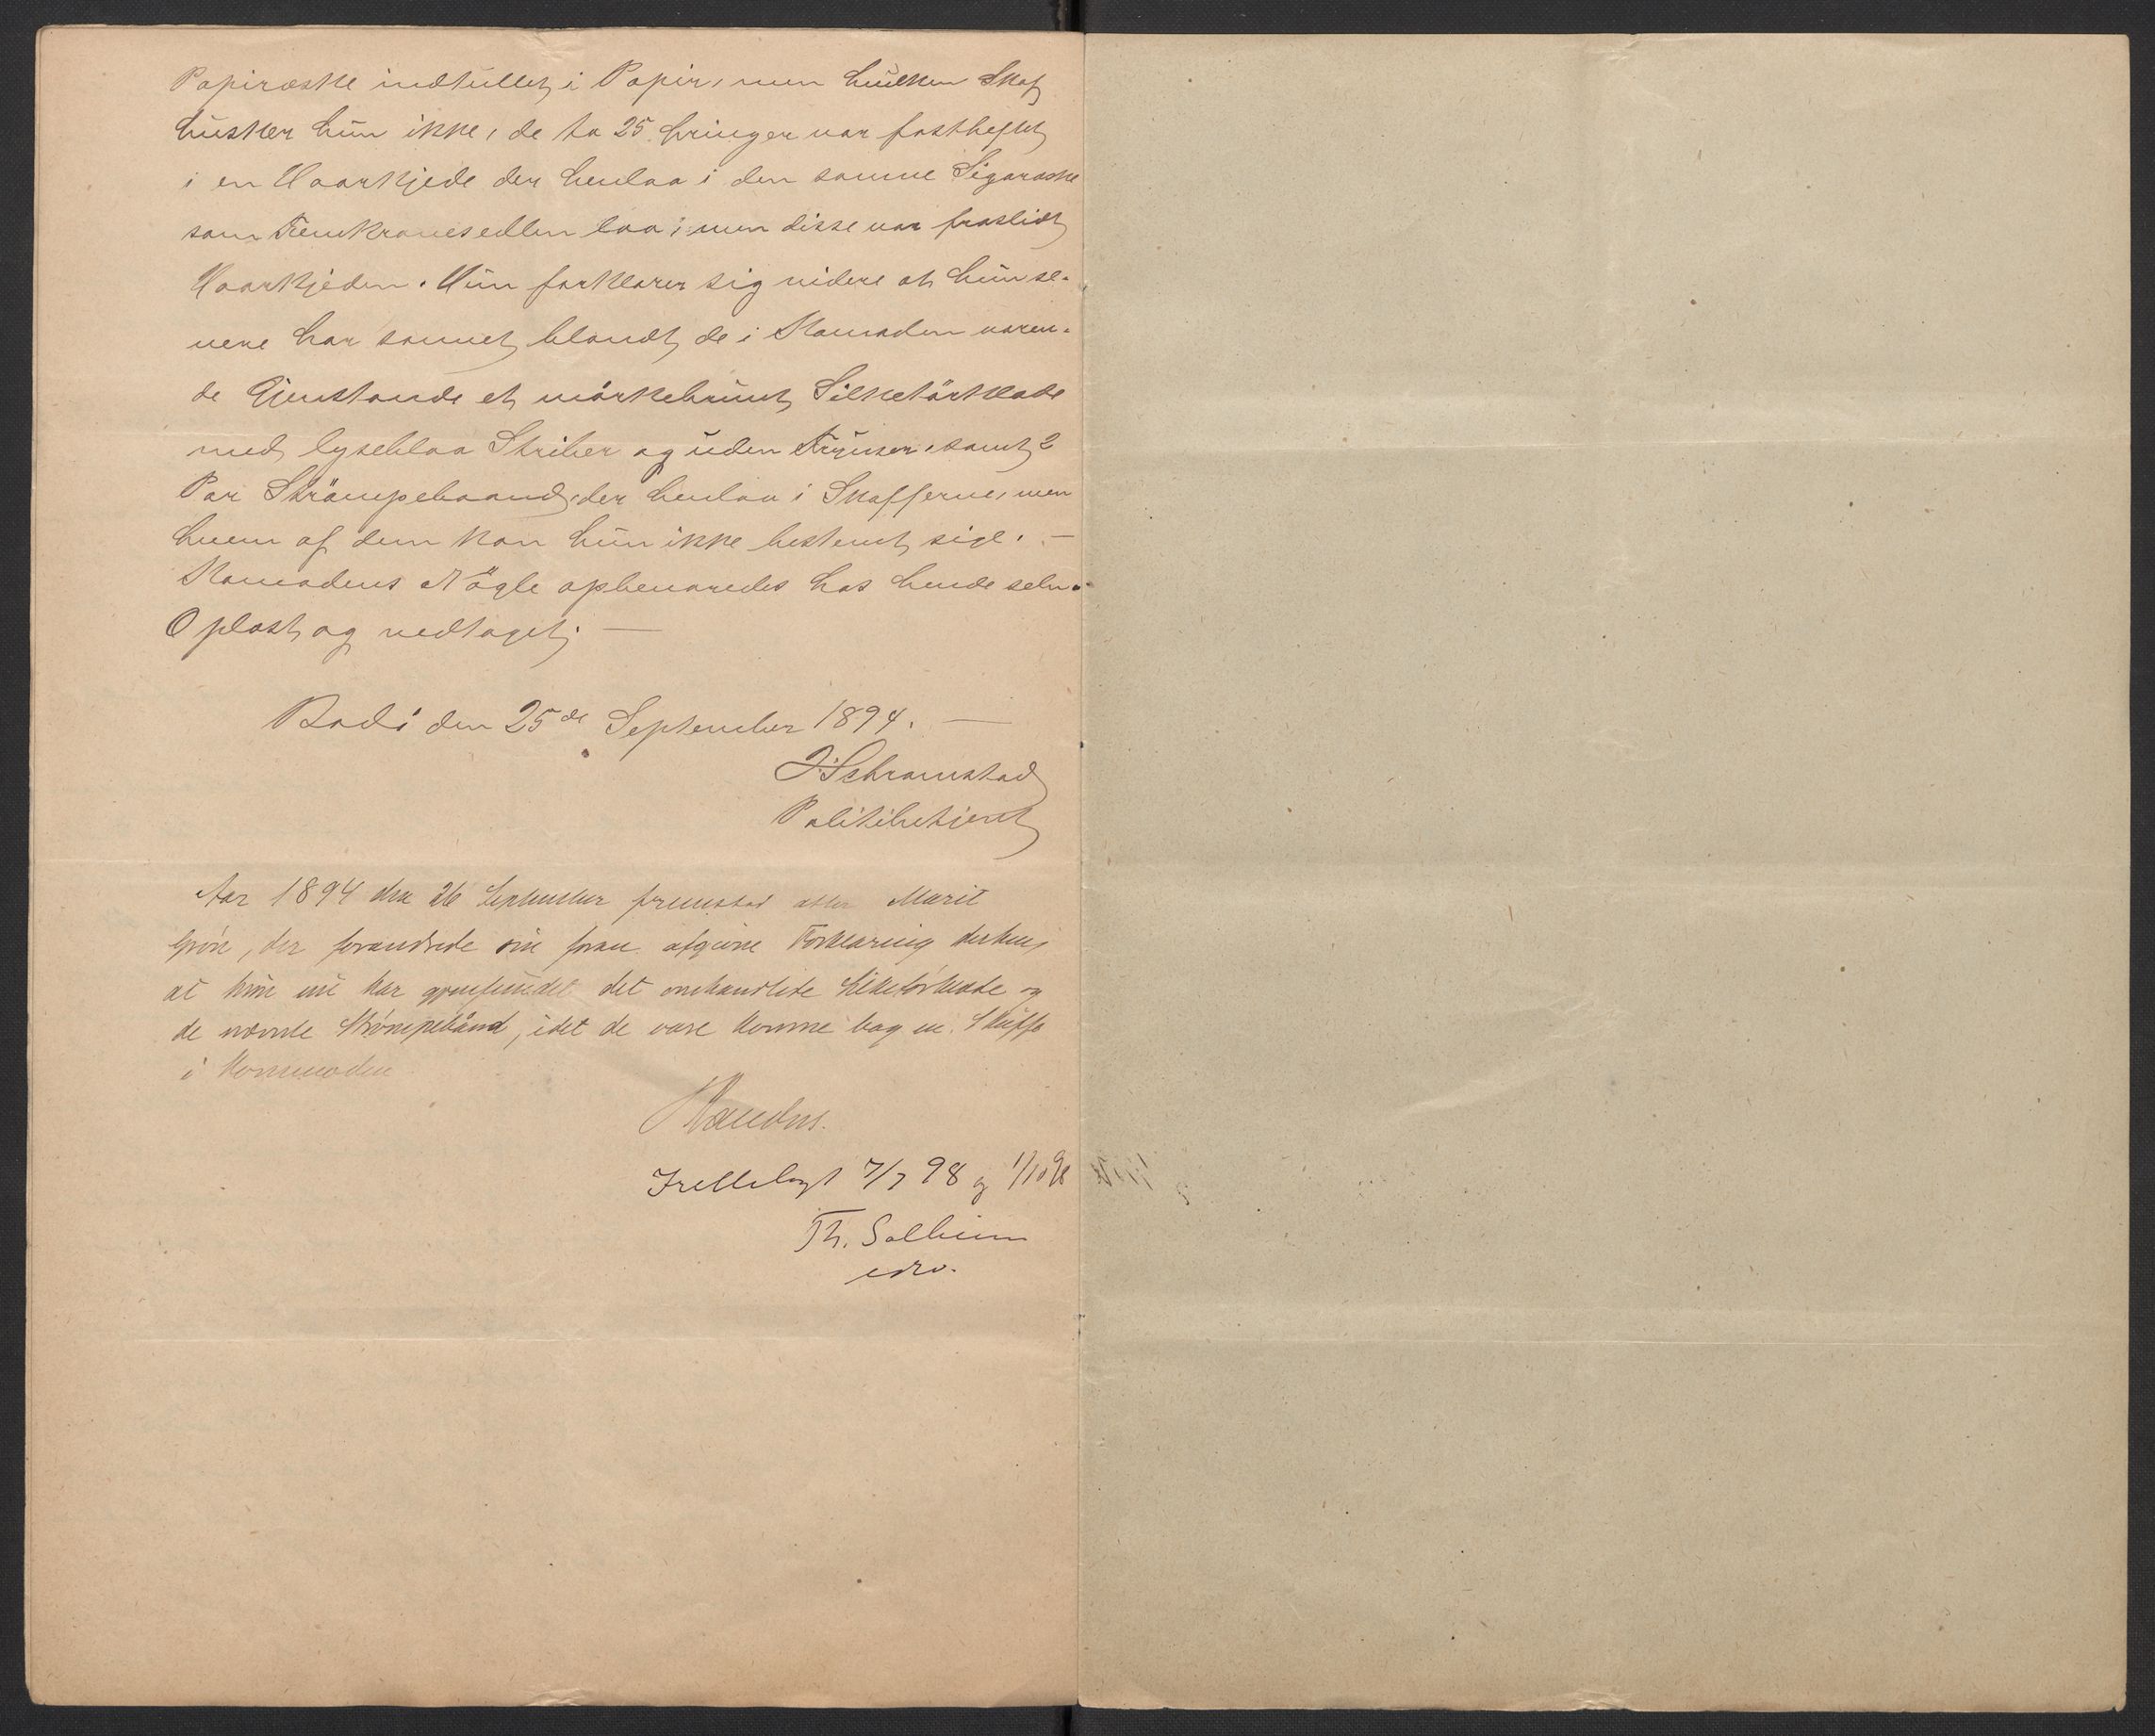 Papiræske indtullet i Papir, men hvilken Skuf
husker hun ikke, de to 25 øringer var fastheftet
i en Haarkjede der henlaa i den samme Sigaræske
som Femkronesedlen laa i men disse var fraslidt
Haarkjeden. Hun forklarer sig videre at hun se-
nere har savnet blandt de i Komoden væren-
de Gjenstande et mørkebrunt Silketørklæde
med lyseblaa Striber og uden Frynser, samt 2
Par Strømpebaand, der henlaa i Skufferne, men
hvem af dem kan hun ikke bestemt sige. —
Komodens Nøgle opbevaredes hos hende selv.
Oplæst og vedtaget. —
Bodø den 25de September 1894. —
J. Schramstad
Politibetjent
Aar 1894 den 26 September fremstod atter Marit
Grøn, der forandrede sin foran afgivne Forklaring derhen,
at hun nu har gjenfundet det omhandlede Silketørklæde og
de nævnte Strømpebånd, idet de vare komne bag en Skuffe
i Kommoden
Fremlagt 7/7 98 og 1/10 98
Th. Solheim